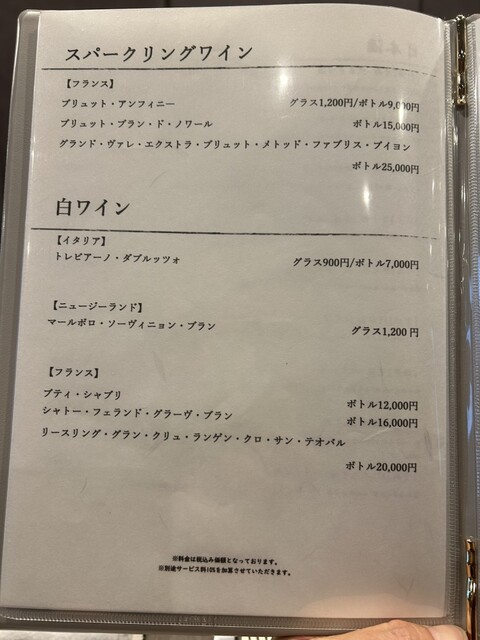 スパークリングワイン
【フランス】
ブリュット・アンフィニー グラス1,200円/ボトル9,000円
ブリュット・ブラン・ド・ノワール ボトル15,000円
グランド・ヴァレ・エクストラ・ブリュット・メトッド・ファブリス・ブイヨン
ボトル25,000円
白ワイン
【イタリア】
トレビアーノ・ダブルッツォ グラス900円/ボトル7,000円
【ニュージーランド】
マールボロ・ソーヴィニョン・ブラン グラス1,200円
【フランス】
プティ・シャブリ ボトル12,000円
シャトー・フェランド・グラーヴ・ブラン ボトル16,000円
リースリング・グラン・クリュ・ランゲン・クロ・サン・テオバル
ボトル20,000円
※料金は税込み価額となっております。
※別途サービス料10%を加算させていただきます。